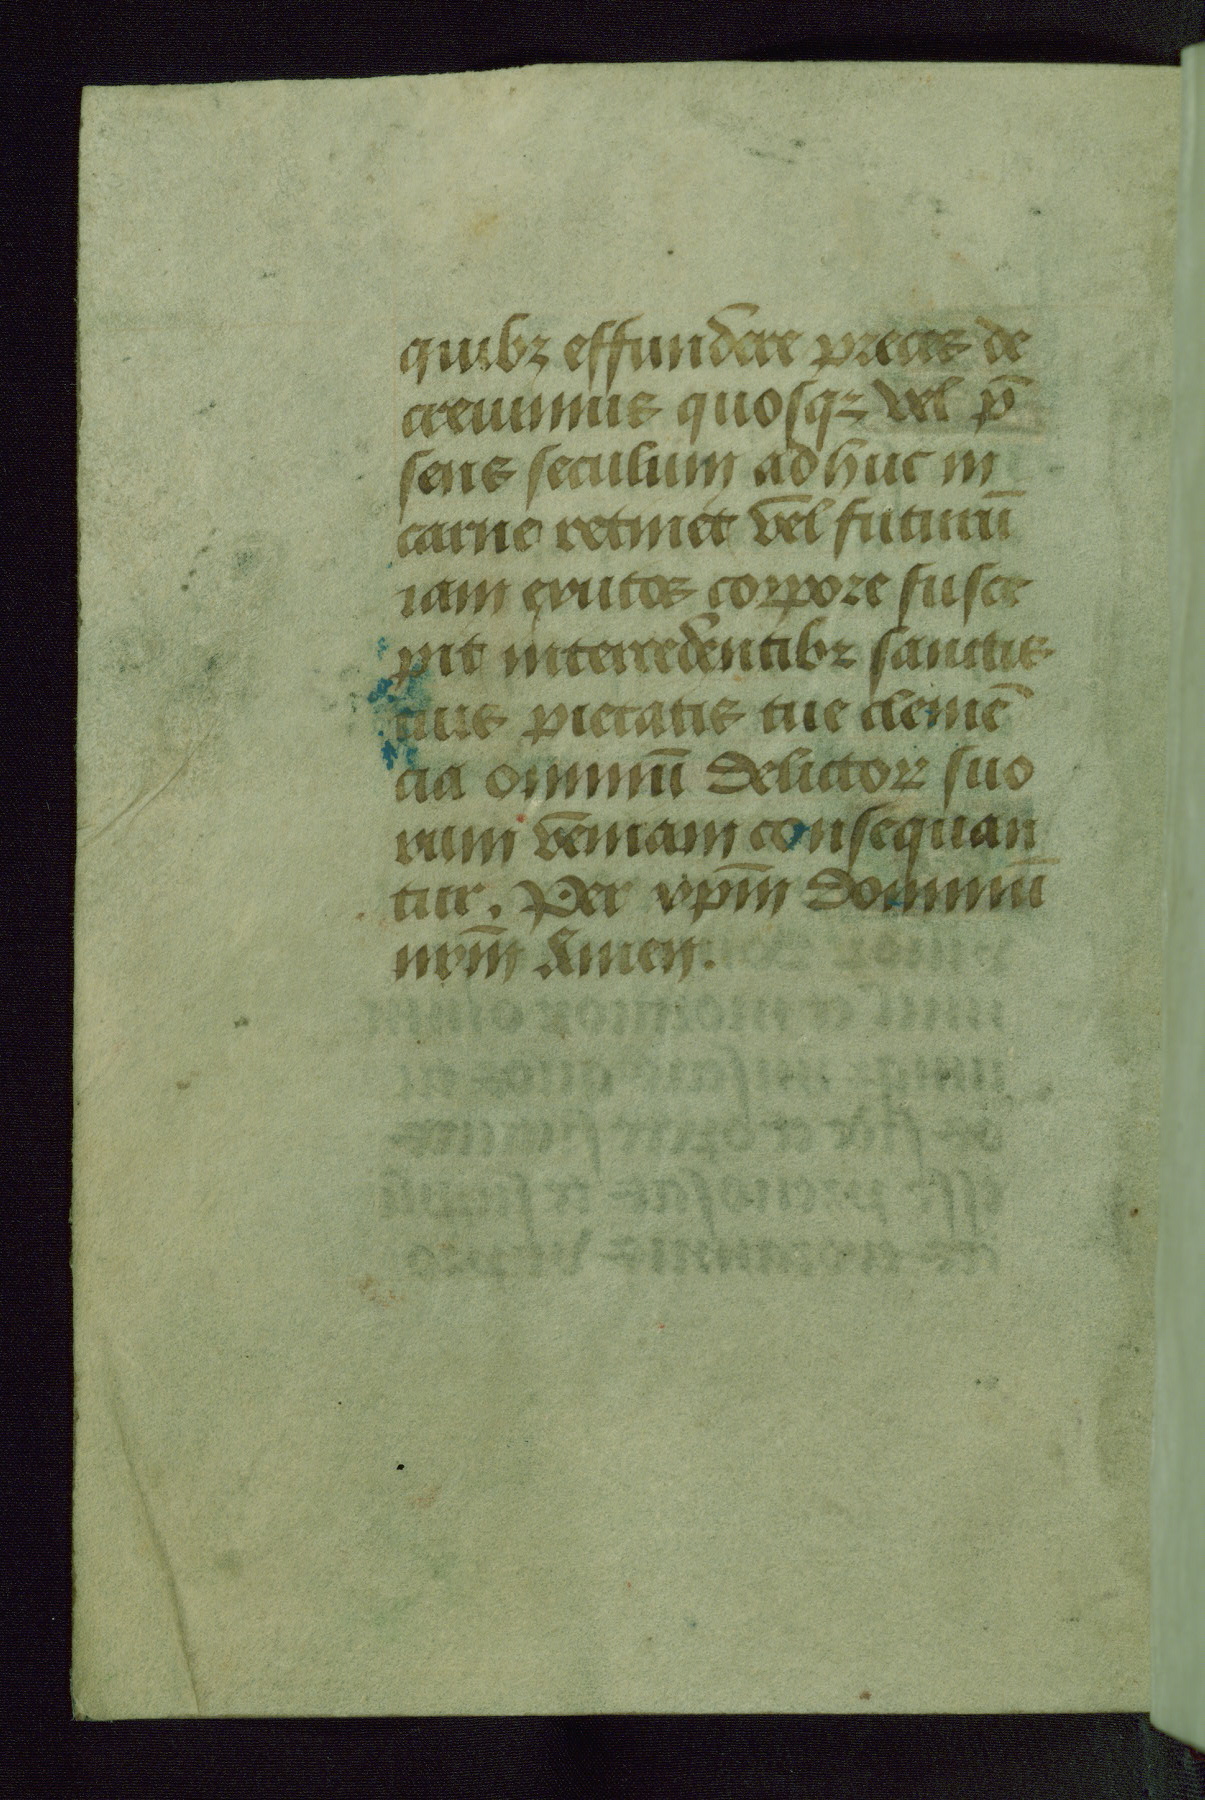 quibꝫ effundere preces de
creuimus quosqꝫ vel p̄
sens seculum adhuc in
carne retinet vel futurū
iam exutos corpore susce
pit intercedentibꝫ sanctis
tuis pietatis tue clemē
cia omniū delictoꝝ suo
rum veniam consequan
tur. Per xp̄m dominū
nr̄m Amen.